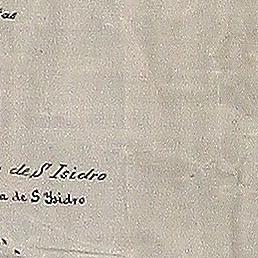 as
de S Isidro
a de S Ysidro